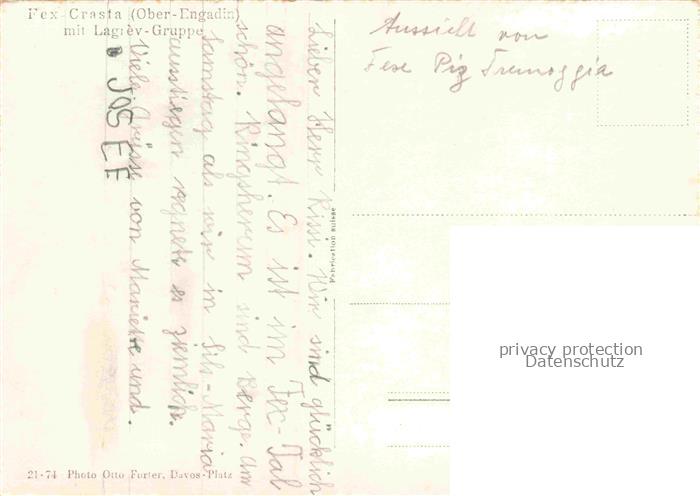 Fex-Crasta (Ober-Engadin)
mit Lagrev-Gruppe
Lieber Herr Rissi. Wir sind glücklich
angelangt. Es ist im Fex-Tal
schön. Ringsherum sind Berge. Am
Samstag als wir in Sils-Maria
ausstiegen regnete es ziemlich.
Viele Grüsse von Marietta und.
JOSEF
Aussicht von
Fexe Piz Tremoggia
Fabrication suisse
privacy protection
Datenschutz
21-74 Photo Otto Furter, Davos-Platz